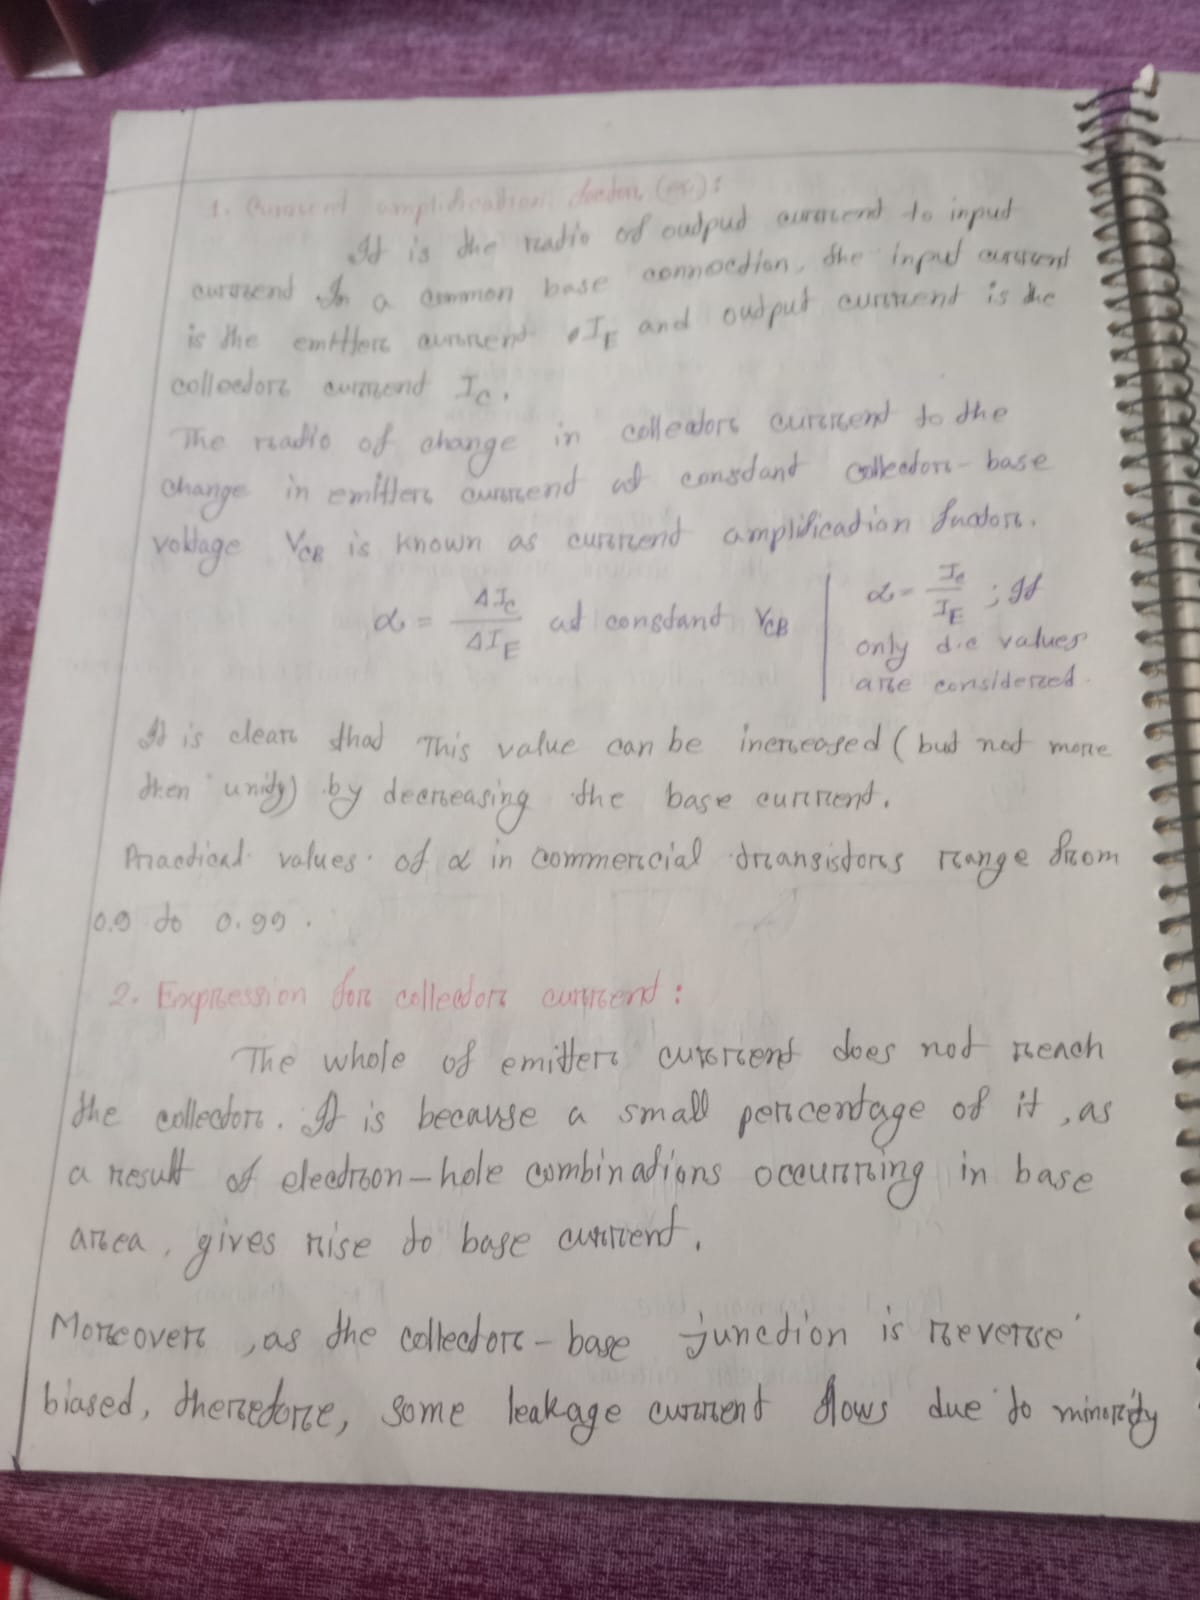 1. Current amplification factor (α):
It is the ratio of output current to input
current In a common base connection, the input current
is the emitter current IE and output current is the
collector current IC.
The ratio of change in collector current to the
change in emitter current at constant collector-base
voltage VCB is known as current amplification factor.
α = ΔIC / ΔIE at constant VCB
α = IC / IE ; If
only d.c values
are considered.
It is clear that This value can be increased (but not more
then unity) by decreasing the base current.
Practical values of α in commercial transistors range from
0.9 to 0.99.
2. Expression for collector current:
The whole of emitter current does not reach
the collector. It is because a small percentage of it, as
a result of electron-hole combinations occurring in base
area, gives rise to base current.
Moreover, as the collector-base junction is reverse
biased, therefore, some leakage current flows due to minority